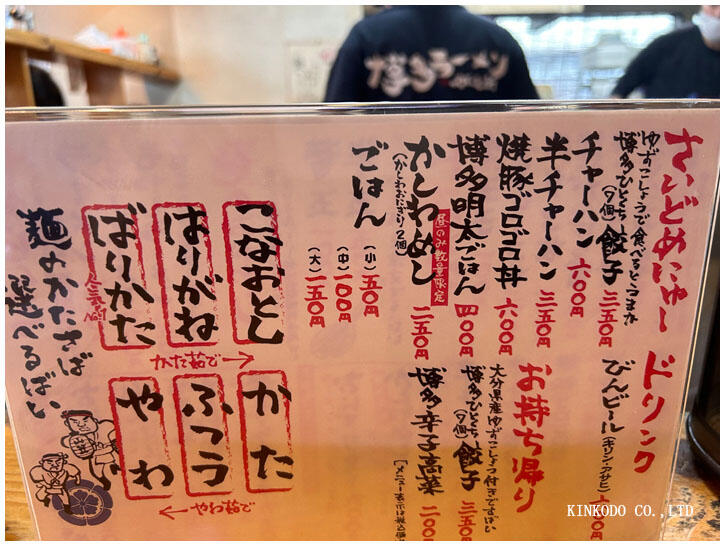 博多ラーメン
さいどめにゅー
ゆずこしょうで食べるとうまか
博多ひとくち餃子
(7個) 三五〇円
チャーハン 六〇〇円
半チャーハン 三五〇円
焼豚ゴロゴロ丼 六〇〇円
博多明太ごはん 四〇〇円
かしわめし 二五〇円
昼のみ数量限定
(かしわおにぎり2個)
ごはん
(小) 五〇円
(中) 一〇〇円
(大) 一五〇円
ドリンク
びんビール
(キリン・アサヒ)
六〇〇円
お持ち帰り
大分県産ゆずこしょう付きですばい
博多ひとくち餃子
(7個) 三五〇円
博多辛子高菜 二〇〇円
こなおとし
はりがね
ばりかた
かた茹で
かた
ふつう
やわ
やわ茹で
麺のかたさば
選べるばい
KINKODO CO.,LTD